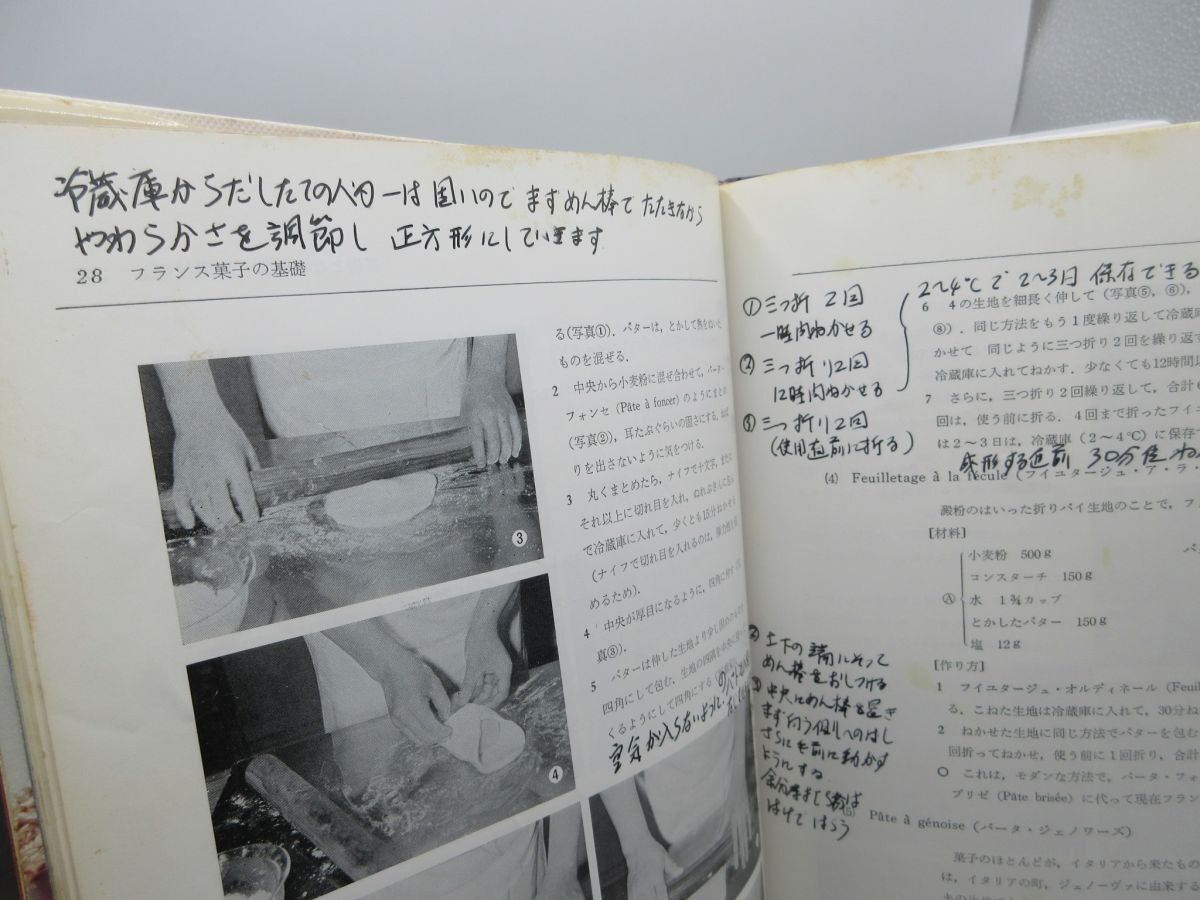 冷蔵庫からだしたてのバターは固いのでまずめん棒でたたきながら
やわらかさを調節し 正方形にしていきます
28 フランス菓子の基礎
る(写真①).バターは,とかして熱をぬいた
ものを混ぜる.
2 中央から小麦粉に混ぜ合わせて,パーター・
フォンセ(Pâte à foncer)のようにまとめ
(写真②),耳たぶぐらいの固さにする.ねば
りを出さないように気をつける.
3 丸くまとめたら,ナイフで十文字,または
それ以上に切れ目を入れ,ぬれぶきんに包ん
で冷蔵庫に入れて,少くとも15分ねかせる
(ナイフで切れ目を入れるのは,弾力性を弱
めるため).
4 中央が厚目になるように,四角に伸す(写
真③).
5 バターは伸した生地より少し
四角にして包む.生地の四隅を中央に
くるようにして四角にする
空気が入らないように
③
④
①三つ折 2回
一時間ねかせる
②三つ折り2回
12時間ねかせる
③三つ折り2回
(使用直前に折る)
2〜4℃で 2〜3日 保存できる
6 4の生地を細長く伸して(写真⑤,⑥),
⑧).同じ方法をもう1度繰り返して冷蔵庫
かせて 同じように三つ折り2回を繰り返す
冷蔵庫に入れてねかす.少なくても12時間以
7 さらに,三つ折り2回繰り返して,合計
回は,使う前に折る.4回まで折ったフイ
は2〜3日は,冷蔵庫(2〜4℃)に保存で
成形する直前 30分位
(4) Feuilletage à la fécule (フイユタージュ・ア・ラ・
澱粉のはいった折りパイ生地のことで,フ
[材料]
Ⓐ
小麦粉 500g
コンスターチ 150g
水 1¾カップ
とかしたバター 150g
塩 12g
バ
[作り方]
1 フイユタージュ・オルディネール(Feuil
る.こねた生地は冷蔵庫に入れて,30分ね
2 ねかせた生地に同じ方法でバターを包む
回折ってねかせ,使う前に1回折り,合計
○ これは,モダンな方法で,パータ・フォ
ブリゼ(Pâte brisée)に代って現在フラン
上下の端にそって
めん棒をおしつける
中央にめん棒を置き
まず向う側へのばし
さらに手前に動かす
ようにする
余分な粉は
はけではらう
Pâte à génoise (パータ・ジェノワーズ)
菓子のほとんどが,イタリアから来たもの
は,イタリアの町,ジェノーヴァに由来する